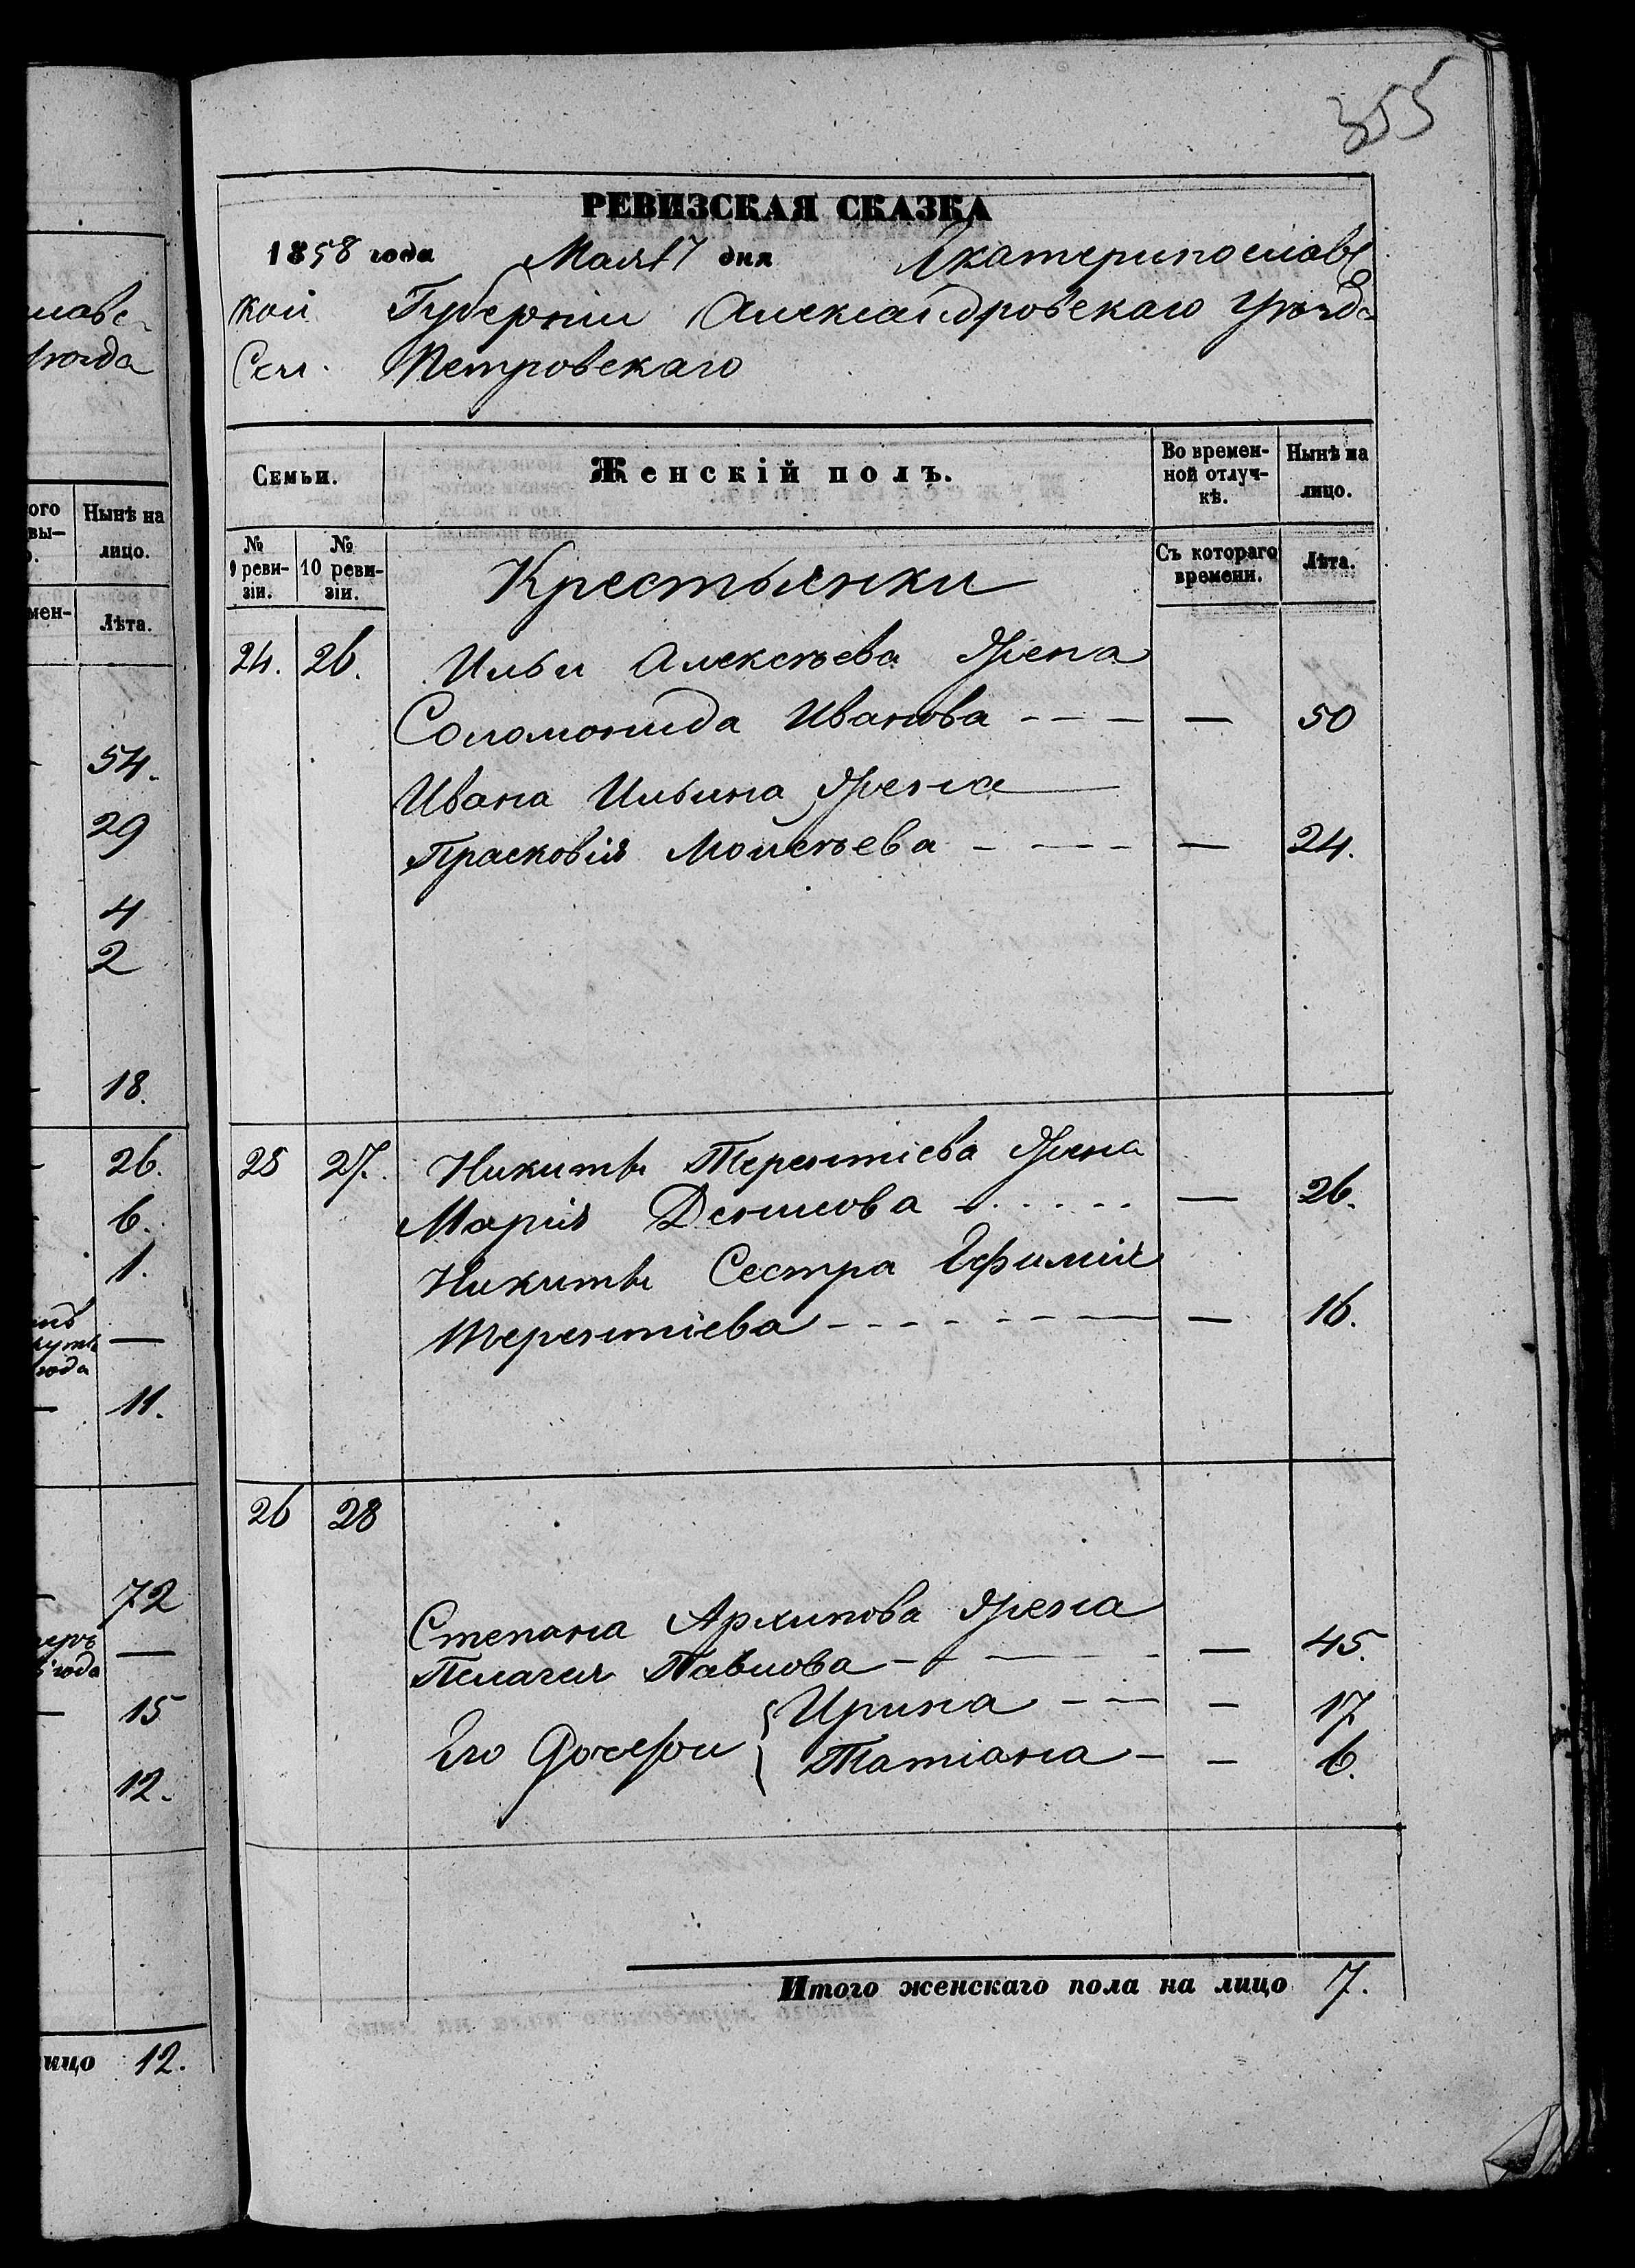 355
РЕВИЗСКАЯ СКАЗКА
1858 года Мая 17 дня Екатеринославс
кой Губерніи Александровскаго Уѣзда
Села Петровскаго
Семьи.
Женскій полъ.
Во времен-
ной отлуч-
кѣ.
Нынѣ на
лицо.
№
9 реви-
зіи.
№
10 реви-
зіи.
Крестьянки
Съ котораго
времени.
Лѣта.
24. 26. Ильи Алексѣева Жена
Соломонида Иванова — 50
Ивана Ильина Жена
Прасковія Моисѣева — 24.
25 27. Никиты Терентіева Жена
Марія Денисова — 26.
Никиты Сестра Ефимія
Терентіева — 16.
26 28
Степана Архипова Жена
Пелагея Павлова — 45.
Его Дочери { Ирина — 17
Татіана — 6.
Итого женскаго пола на лицо 7.
ого
вы-
Нынѣ на
лицо.
мен-
Лѣта.
54.
29
4
2
18.
26.
6.
1.
года —
11.
72
года —
15
12.
лицо 12.